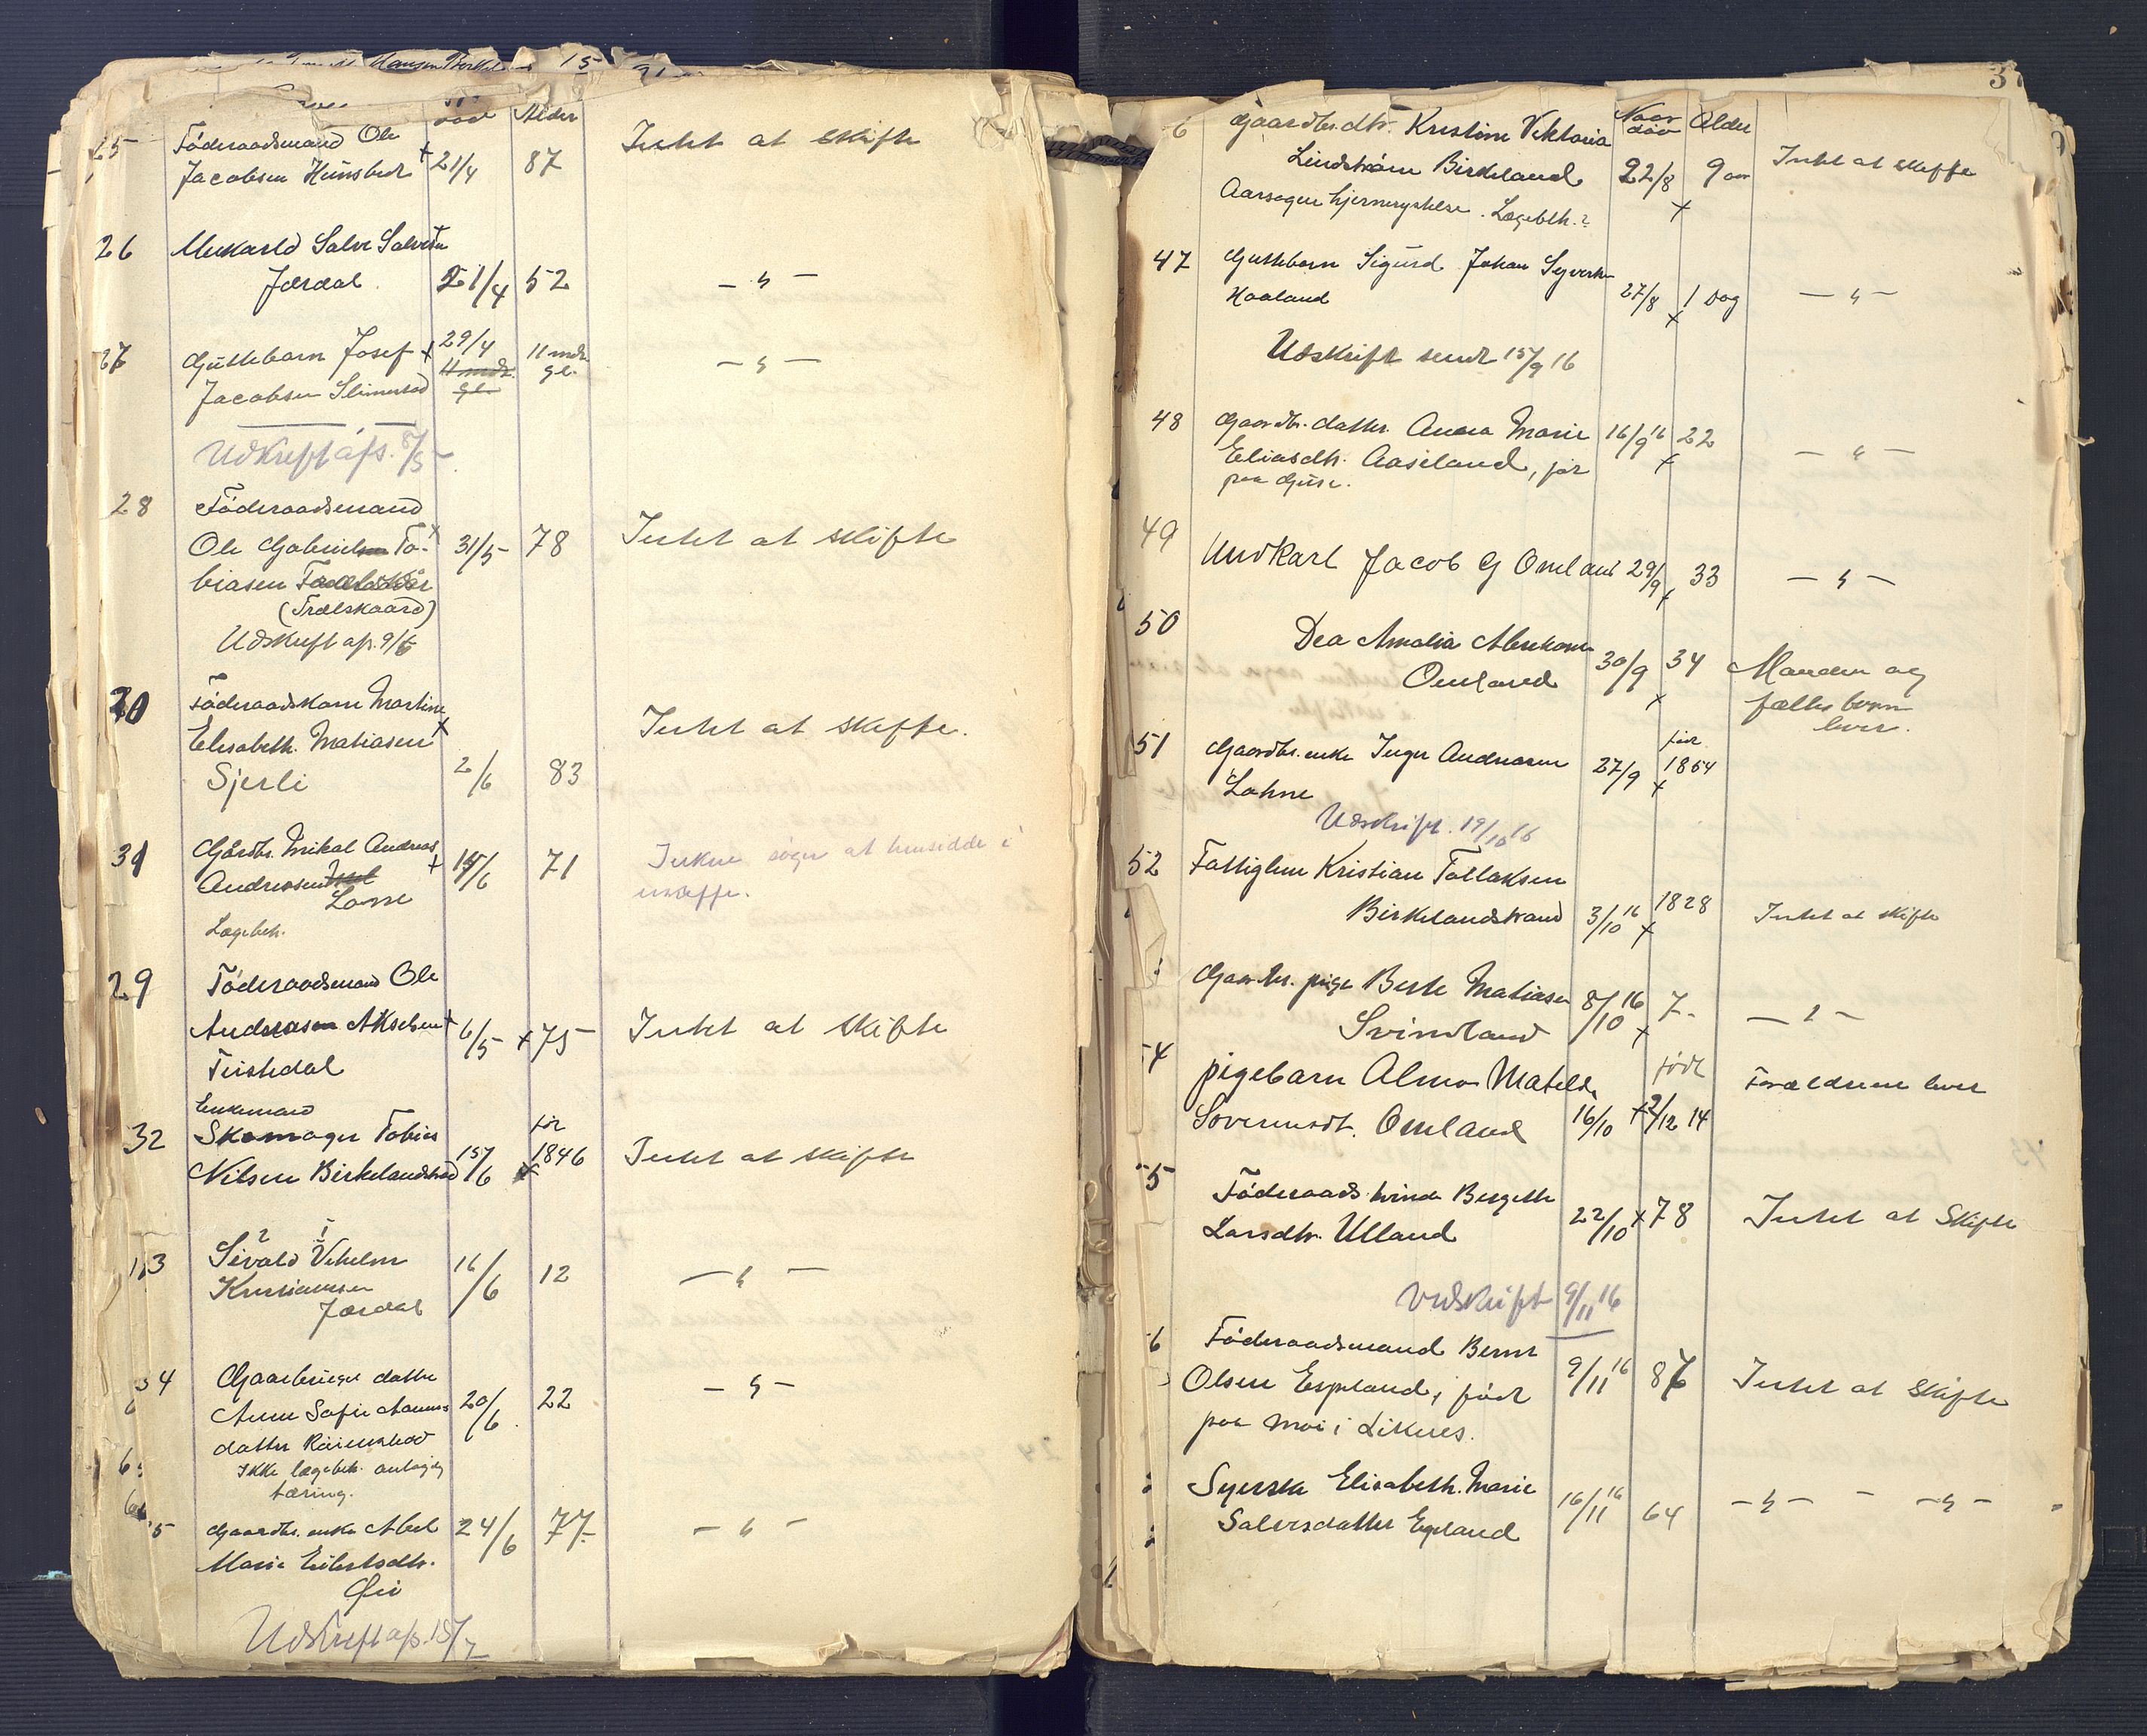 Hansen Birkel 15
død Alder
25 Föderaadsmand Ole
Jacobsen Hunsbedt + 21/4 87 Intet at skifte
26 Ungkarl Salve Salvesen
Jerdal 21/4 52 — " —
27 Guttebarn Josef + 29/4 11 mdr. gl. — " —
Jacobsen Slimestad 11 mdr. gl.
Udskrift afs. 8/5
28 Föderaadsmand
Ole Gabrielsen To- 31/5 78 Intet at skifte
biasen
(Trælskaard)
Udskrift afs. 9/6
30 Föderaadskone Martine
Elisabeth Matiasen + Intet at skifte.
Sjerli 2/6 83
31 Gårdbr. Mikal Andreas
Andreasen + 14/6 71 Enken søger at hensidde i
Lone uskifte.
Lægebeh.
29 Föderaadsmand Ole
Andreasen Akselsen + 6/5 + 75 Intet at skifte
Teistedal
Enkemand
32 Skomager Tobias før
Nilsen Birkelandstrand 15/6 x 1846 Intet at skifte
33 Sivald Vilhelm
Kristiansen 16/6 12 — " —
Jerdal
34 Gaardbruger datter
Anne Sofie Aanens 20/6 22 — " —
datter Röiemshed
Ikke lægebeh. antagelig
tæring.
35 Gaardbr. enke Abel 24/6 77 — " —
Marie Eilertsdtr.
Öie
Udskrift afs. 15/7
37
Naar død Alder
6 Gaardbr.dtr. Kristine Viktoria
Lindström Birkeland 22/8 9 aar Intet at skifte
Aarsagen hjernerystelse. Lægebeh.? x
47 Guttebarn Sigurd Johan Syverts.
Haaland 27/8 1 Dag — " —
x
Udskrift sendt 15/9 16
48 Gaardbr. datter Anna Marie 16/9 16 22
Eliasdtr. Aaseland, før x — " —
paa Gyse.
49 Ungkarl Jacob G Omland 29/9 33 — " —
x
50 Dea Amalia Abrahams
Omland 30/9 34 Manden og
x fælles børn
lever.
51 Gaardbr. enke Inger Andreasen 27/9 før 1854
Lohne x
Udskrift. 19/10 16
52 Fattiglem Kristian Tollaksen
Birkelandstrand 3/10 16 1828 Intet at skifte
x
Gaardbr. pige Berte Matiasen 8/10 16 7 — " —
Svindland x
54 pigebarn Alma Matilde født Forældrene lever
Sørensdt. Omland 16/10 + 2/12 14
55 Föderaads kvinde Bergette
Larsdtr. Ulland 22/10 x 78 Intet at Skifte
Udskrift 9/11 16
6 Föderaadsmand Bernt
Olsen Espeland, født 9/11 16 87 Intet at Skifte
paa Moi i Liknes.
Syerske Elisabeth Marie
Salvesdatter Egeland 16/11 16 64 — " — — " —